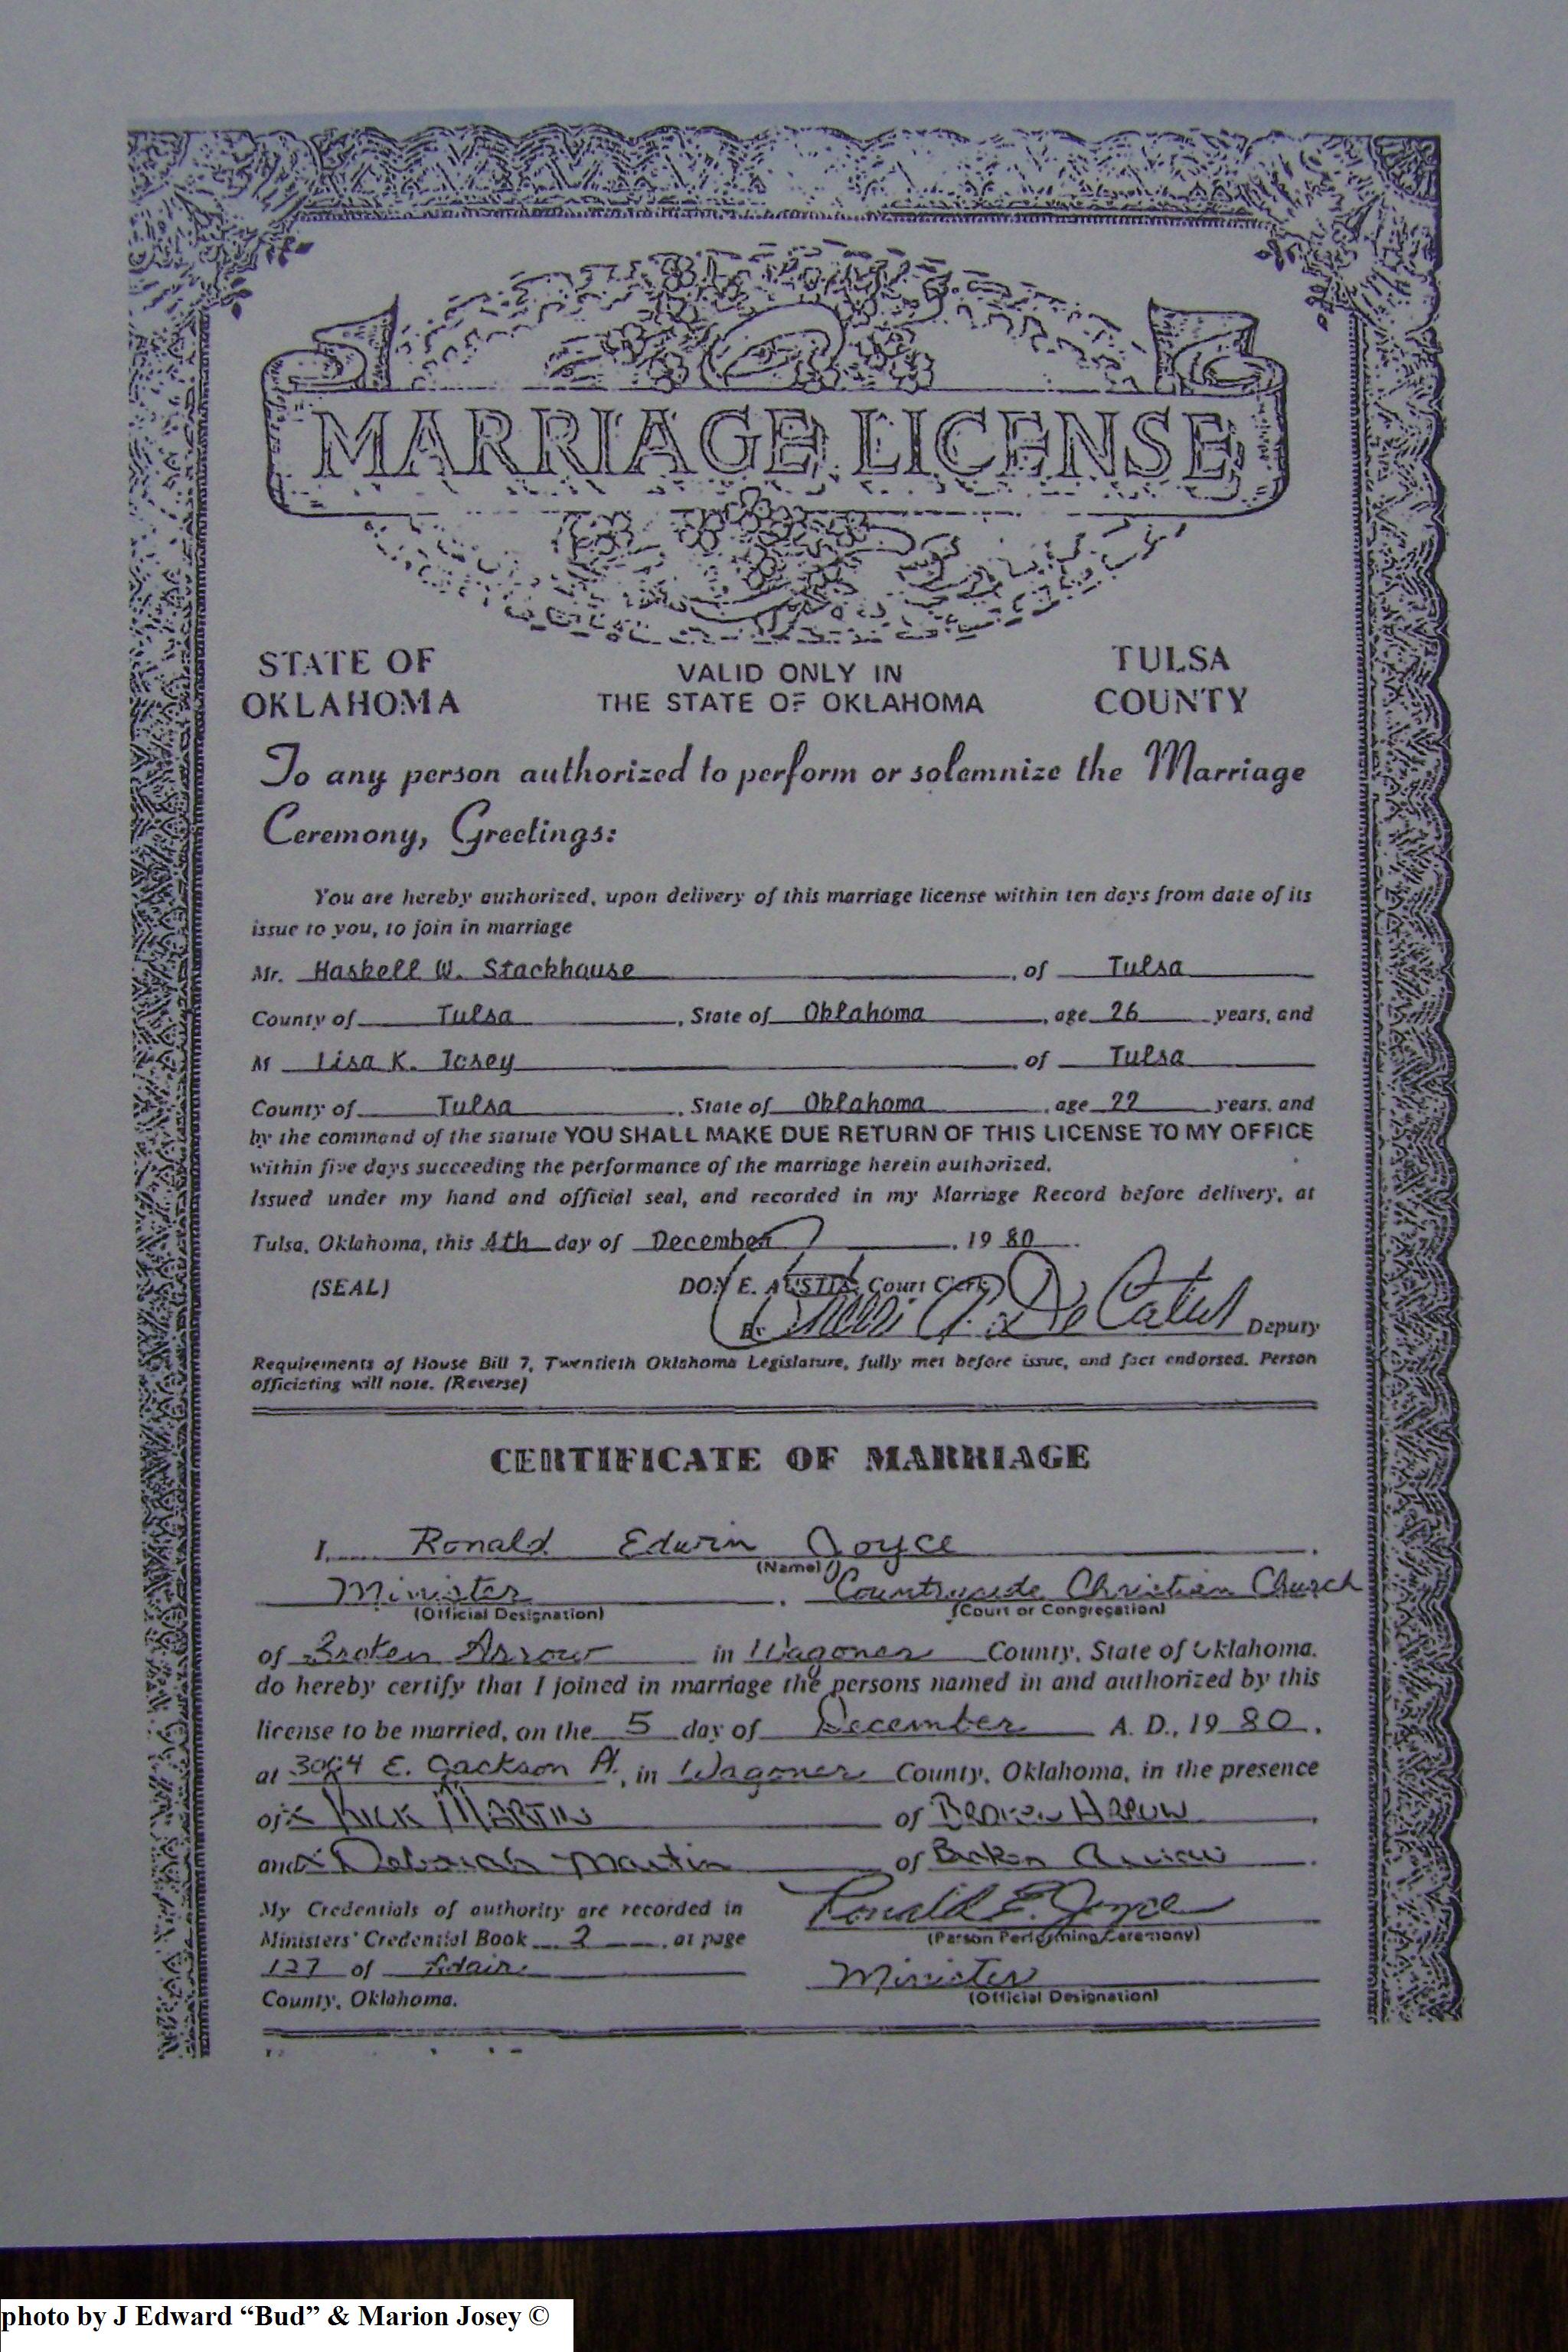 MARRIAGE LICENSE
STATE OF OKLAHOMA
VALID ONLY IN THE STATE OF OKLAHOMA
TULSA COUNTY
To any person authorized to perform or solemnize the Marriage
Ceremony, Greetings:
You are hereby authorized, upon delivery of this marriage license within ten days from date of its
issue to you, to join in marriage
Mr. Haskell W. Stackhouse, of Tulsa
County of Tulsa, State of Oklahoma, age 26 years, and
M Lisa K. Josey, of Tulsa
County of Tulsa, State of Oklahoma, age 22 years, and
by the command of the statute YOU SHALL MAKE DUE RETURN OF THIS LICENSE TO MY OFFICE
within five days succeeding the performance of the marriage herein authorized.
Issued under my hand and official seal, and recorded in my Marriage Record before delivery, at
Tulsa, Oklahoma, this 4th day of December, 1980.
(SEAL) DON E. AUSTIN, Court Clerk
By Deputy
Requirements of House Bill 7, Twentieth Oklahoma Legislature, fully met before issue, and fact endorsed. Person
officiating will note. (Reverse)
CERTIFICATE OF MARRIAGE
I, Ronald Edwin Joyce.
(Name)
Minister, Countryside Christian Church
(Official Designation) (Court or Congregation)
of Broken Arrow in Wagoner County, State of Oklahoma.
do hereby certify that I joined in marriage the persons named in and authorized by this
license to be married, on the 5 day of December A. D., 1980.
at E. Jackson Pl., in Wagoner County, Oklahoma, in the presence
of x Rick Martin of Broken Arrow,
and x Deborah Martin of Broken Arrow.
My Credentials of authority are recorded in
Ministers' Credential Book 2, at page
127 of Adair
County, Oklahoma.
Ronald E. Joyce
(Person Performing Ceremony)
Minister
(Official Designation)
photo by J Edward “Bud” & Marion Josey ©